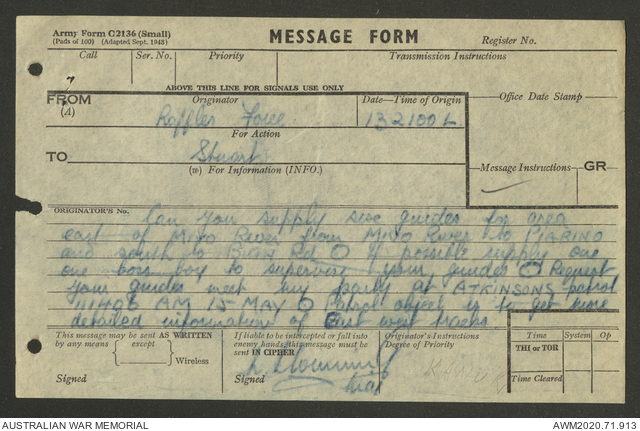 Army Form C2136 (Small)
(Pads of 100) (Adapted Sept. 1943)
MESSAGE FORM
Register No.
Call Ser. No. Priority Transmission Instructions
ABOVE THIS LINE FOR SIGNALS USE ONLY
FROM Originator Date—Time of Origin Office Date Stamp
(A) Raffles Force 132100 L
For Action
TO Stuart
(w) For Information (INFO.) Message Instructions GR
ORIGINATOR'S No.
Can you supply six guides for area
east of MIVO River from MIVO River to MARINO
and south to Buin Rd O If possible supply one
one boss boy to supervise your guides O Request
your guides meet my party at ATKINSONS patrol
AM 15 MAY O Patrol object is to get more
detailed information of East west tracks
This message may be sent AS WRITTEN
by any means except
Wireless
Signed
If liable to be intercepted or fall into
enemy hands, this message must be
sent IN CIPHER
Signed
Maj
Originator's Instructions
Degree of Priority
Time System Op
THI or TOR
Time Cleared
AUSTRALIAN WAR MEMORIAL
AWM2020.71.913